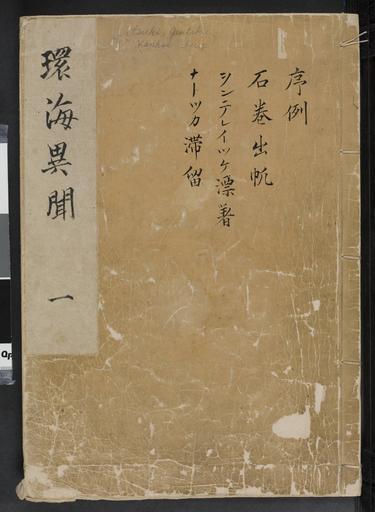 序例
石巻出帆
シンニテレイツケ漂着
ナーツカ滞留
環海異聞 一